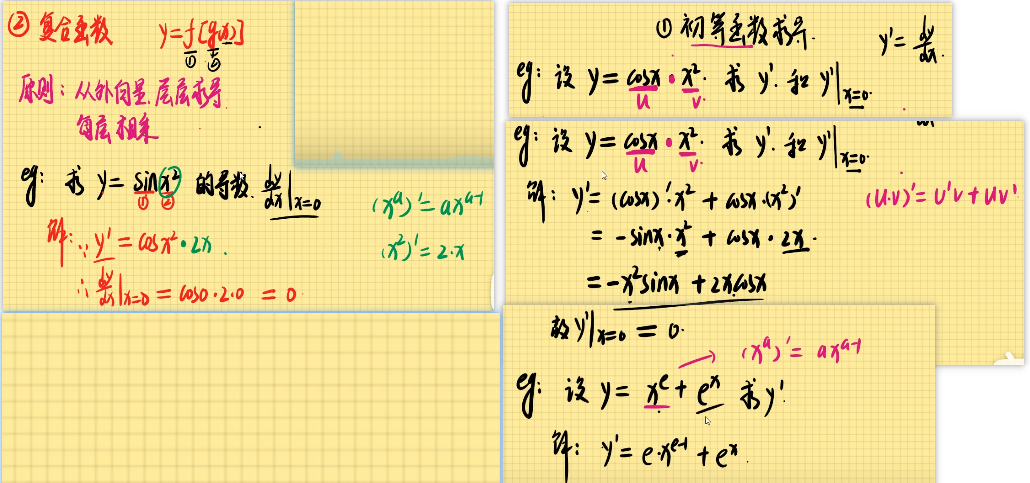 ② 复合函数 y=f[g(x)]
① ②
原则：从外向里.层层求导
每层相乘
eg: 求 y=sinx² 的导数. dy/dx|x=0
① ②
解：∵ y'=cosx²·2x.
∴ dy/dx|x=0 = cos0·2·0 = 0
(x^a)'=ax^(a-1)
(x²)'=2·x
① 初等函数求导. y'=dy/dx
eg: 设 y=cosx·x². 求 y'. 和 y'|x=0.
u v.
eg: 设 y=cosx·x². 求 y'. 和 y'|x=0.
u v.
解：y'=(cosx)'·x²+cosx·(x²)' (u·v)'=u'v+uv'
=-sinx·x²+cosx·2x.
=-x²sinx+2xcosx
故 y'|x=0 = 0.
(x^a)'=ax^(a-1)
eg: 设 y=x^e+e^x 求 y'.
解：y'=e·x^(e-1)+e^x.